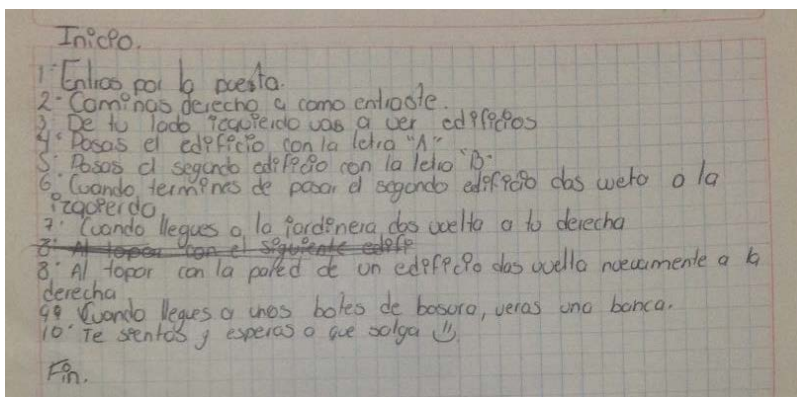 Inicio.
1· Entras por la puesta.
2· Caminas derecho a como entraste.
3· De tu lado izquierdo vas a ver edificios
4· Pasas el edificio con la letra "A"
5· Pasas el segundo edificio con la letra "B"
6. Cuando termines de pasar el segundo edificio das welta a la
izquierdo
7· Cuando llegues a la jardinera das vuelta a tu derecha
8· Al topar con el siguiente edifi
8· Al topar con la pared de un edificio das vuelta nuevamente a la
derecha
9· Cuando llegues a unos botes de basura, veras una banca.
10· Te sientas y esperas a que salga
Fin.